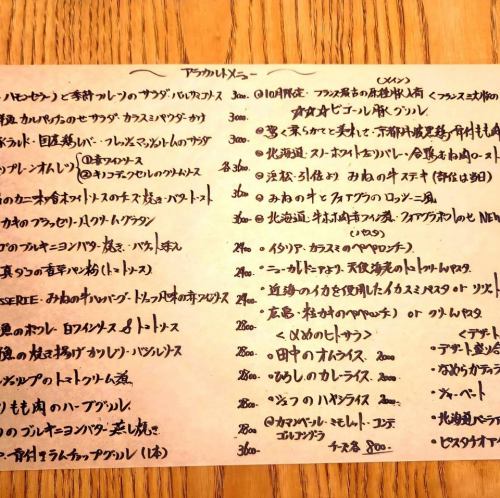 アラカルトメニュー
ハモンセラーノと季節フルーツのサラダ・バルサミコソース 3000
カルパッチョのせサラダ カラスミパウダーかけ 3000
ランド・国産鶏レバー・フレッシュマッシュルームのサラダ 3000
プレーンオムレツ ①赤ワインソース
②キノコデュクセルのクリームソース 各3600
カニ味噌ホワイトソースのチーズ焼き・バタートースト 3600
カキのブラッセリー風クリームグラタン 3600
のブルギニヨンバター焼き・バゲット添え 2400
真ダコの香草パン粉(トマトソース) 2400
SSERIE・みねの牛ハンバーグ・トリュフ風味の赤ワインソース 2400
魚のポワレ・白ワインソース & トマトソース 2800
魚の焼き揚げ カツレツ・バジルソース 2800
のトマトクリーム煮 2800
もも肉のハーブグリル 2800
のブルギニヨンバター蒸し焼き 2800
骨付きラムチョップグリル(1本) 3600
(メイン)
◎10月限定・フランス最古の原種豚入荷 <フランス三大豚の
☆☆☆ビゴール豚グリル
◎驚く柔らかさと美味さ・京都丹波黒鶏骨付もも肉
◎北海道・スノーホワイト
◎浜松・引佐より みねの牛ステキ (部位は当日)
◎みねの牛とフォアグラのロッシーニ風
◎北海道・牛ホホ肉赤ワイン煮・フォアグラポワレのせ NEW
(パスタ)
・イタリア・カラスミのペペロンチーノ
・ニューカレドニアより、天使海老のトマトクリームパスタ
・近海のイカを使用したイカスミパスタ or リゾット
・広島・粒カキのペペロンチーノ or クリームパスタ
<〆めのヒトサラ>
・田中のオムライス 2000
・ひろしのカレーライス 2000
・シェフのハヤシライス 2000
◎カマンベール・ミモレット・コンテ
ゴルゴンゾラ チーズ各 800
<デザート
・デザート盛り合
・なめらかテリ
・シャーベット
・北海道バニラア
・ピスタチオアイ